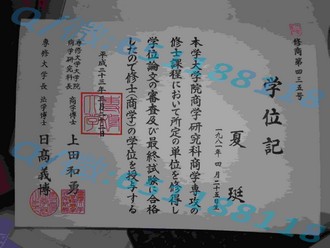 修商第四三五号
学位記
夏珽
一九八一年四月二十五日生
本学大学院商学研究科商学専攻の
修士課程において所定の単位を修得し
学位論文の審査及び最終試験に合格
したので修士（商学）の学位を授与する
平成二十三年三月二十二日
専修大学大学院
商学研究科長 商学博士 上田和勇
専修大学長 法学博士 日高義博